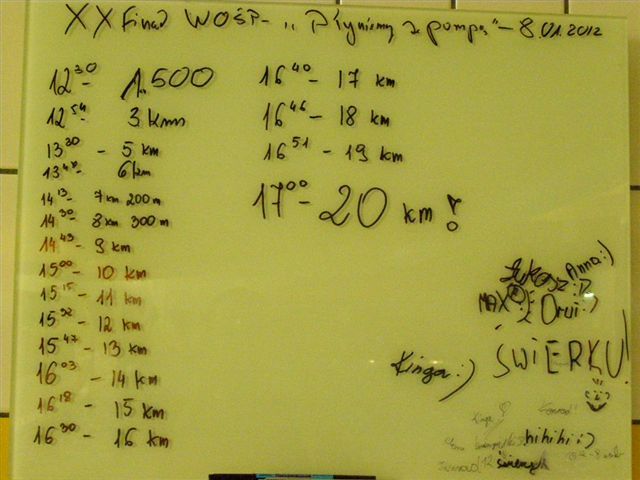 XX Finał WOŚP - „Płyniemy z pompą" - 8.01.2012
12³⁰ - 1.500
12⁵⁴ - 3 km
13³⁰ - 5 km
13⁴⁸ - 6 km
14¹³ - 7 km 200 m
14³⁰ - 8 km 300 m
14⁴³ - 9 km
15⁰⁰ - 10 km
15¹⁵ - 11 km
15³² - 12 km
15⁴⁷ - 13 km
16⁰³ - 14 km
16¹⁸ - 15 km
16³⁰ - 16 km
16⁴⁰ - 17 km
16⁴⁶ - 18 km
16⁵¹ - 19 km
17⁰⁰ - 20 km!
Łukasz :) Anna :)
MAX
Kinga :)
ŚWIERKU!
hihihi :)